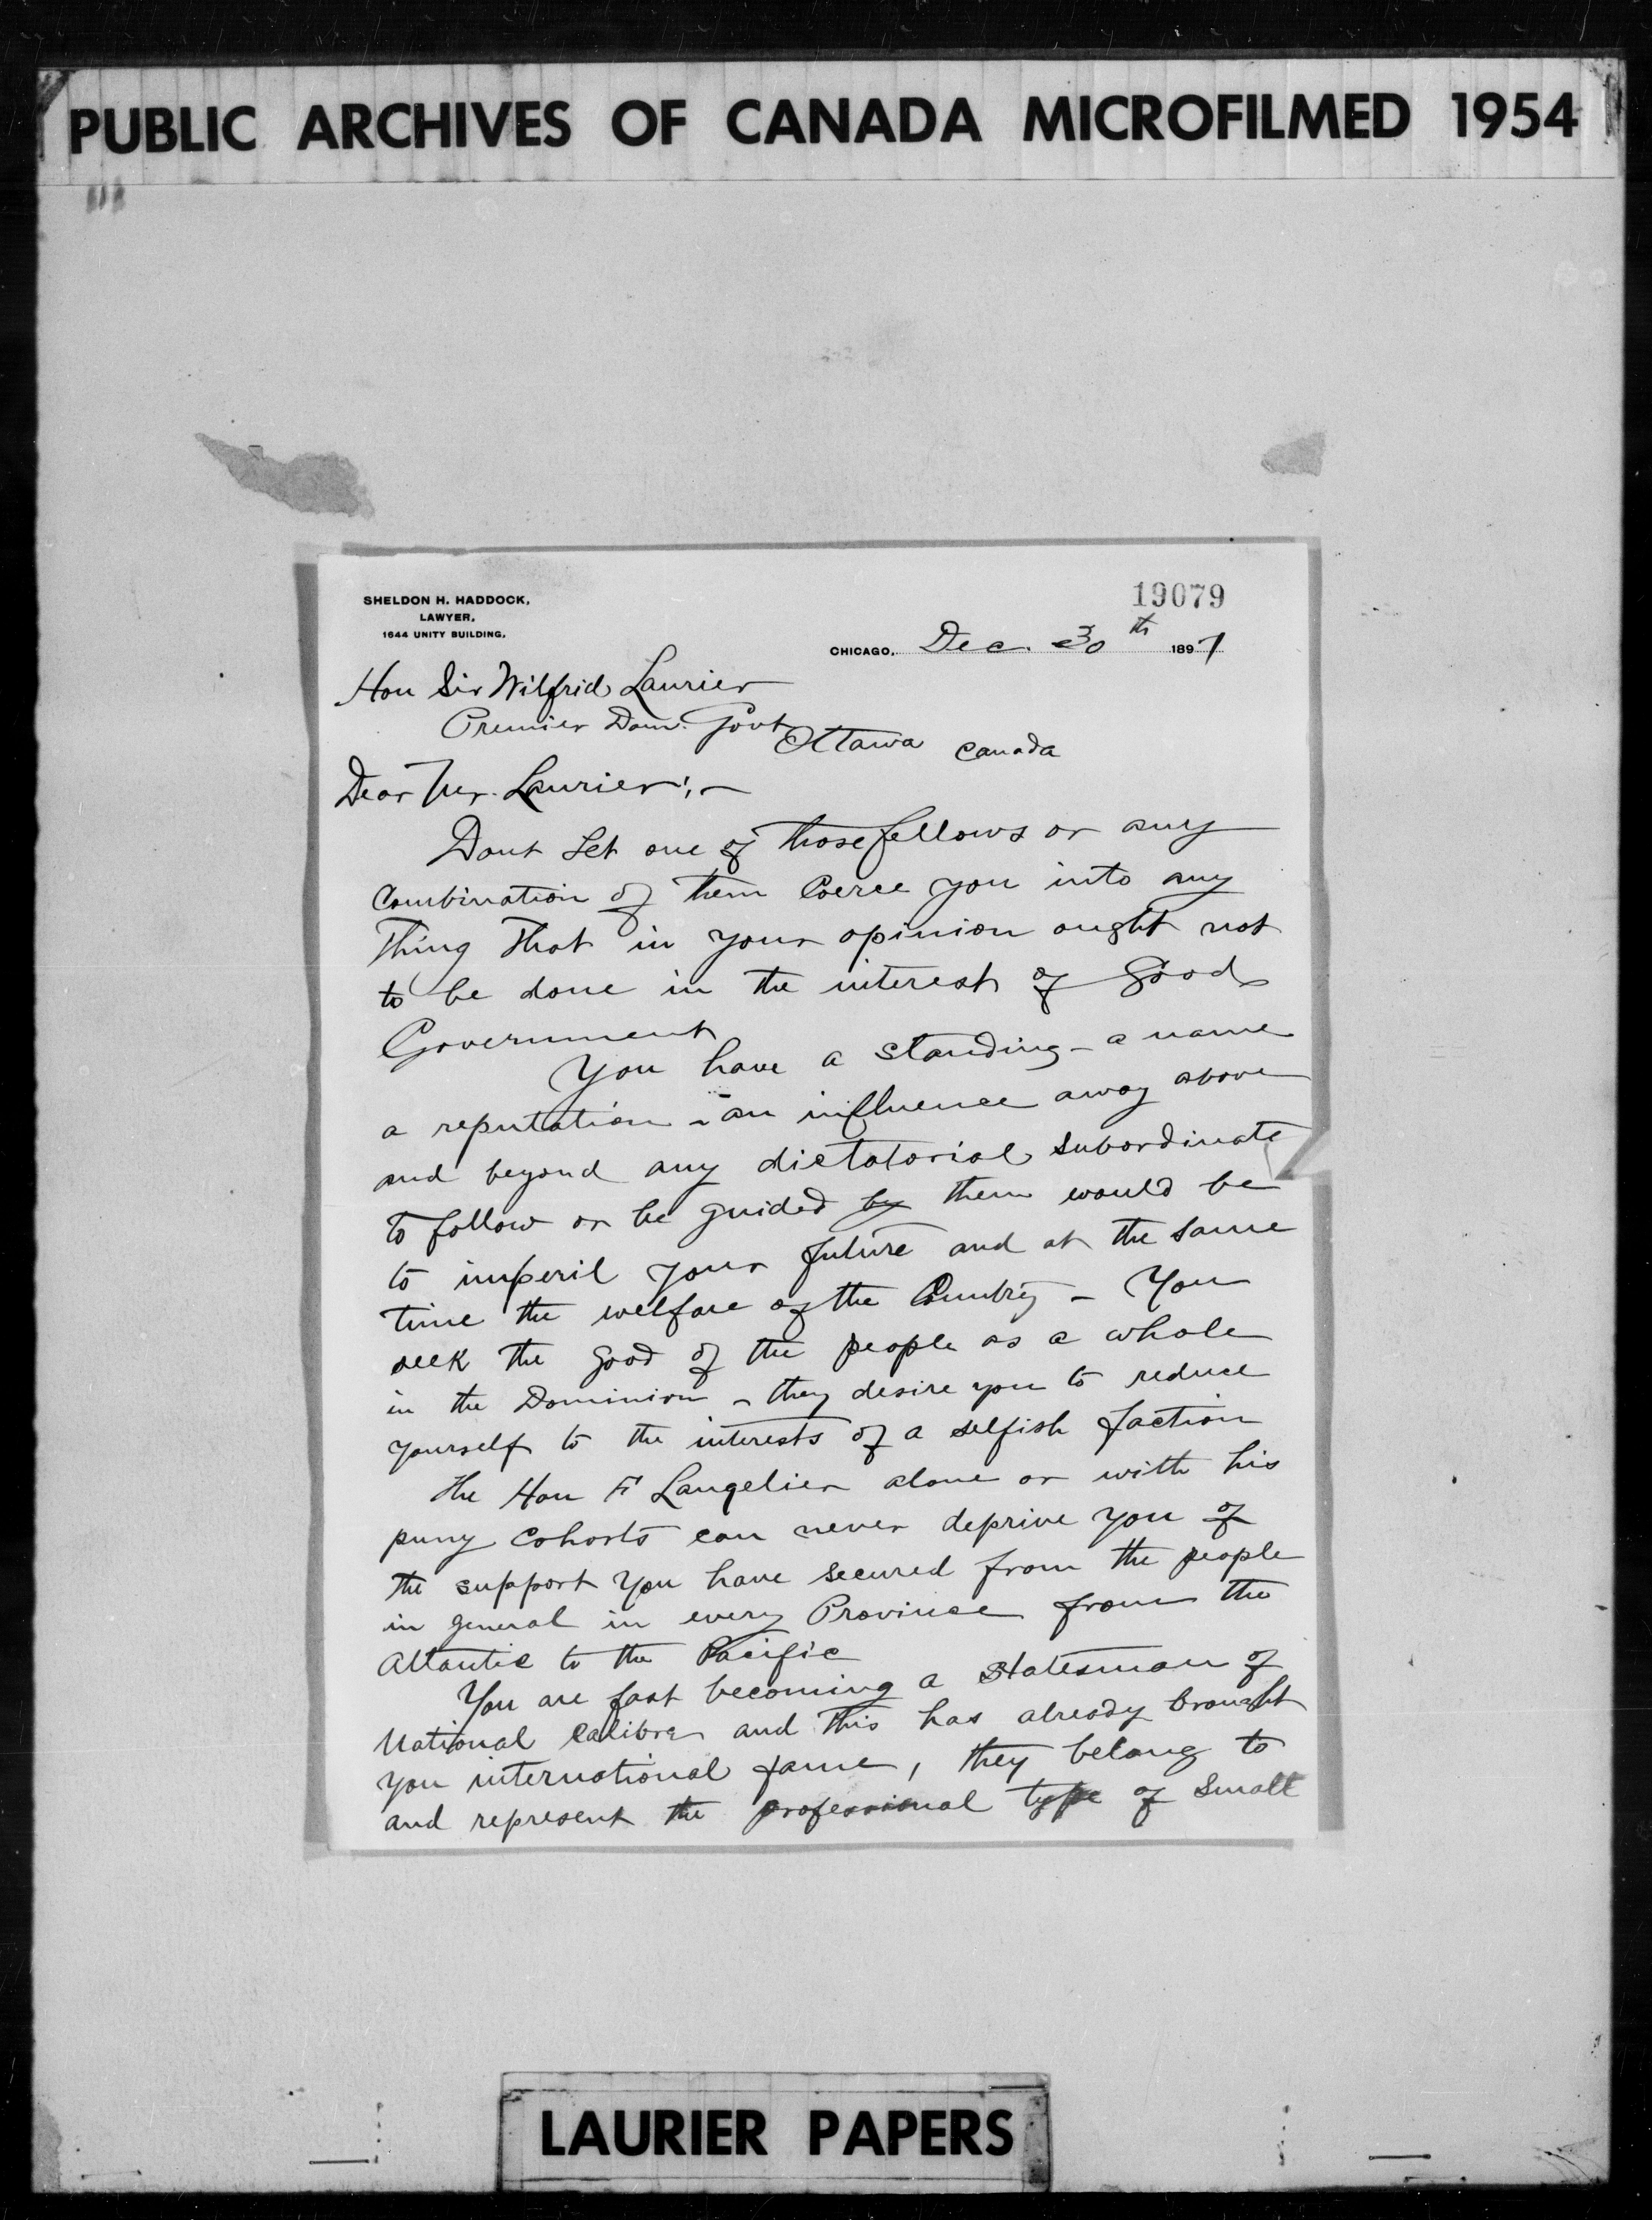 PUBLIC ARCHIVES OF CANADA MICROFILMED 1954
19079
SHELDON H. HADDOCK,
LAWYER,
1644 UNITY BUILDING.
CHICAGO, Dec. 30th 1897
Hon Sir Wilfrid Laurier
Premier Dom. Govt
Ottawa Canada
Dear Mr. Laurier:—
Dont Let one of those fellows or any
combination of them Coerce you into any
Thing That in your opinion ought not
to be done in the interest of Good
Government
You have a standing – a name
a reputation – an influence away above
and beyond any dictatorial subordinate
to follow or be guided by them would be
to imperil your future and at the same
time the welfare of the Country – You
seek the good of the people as a whole
in the Dominion – they desire you to reduce
yourself to the interests of a selfish faction
The Hon F Langelier alone or with his
puny cohorts can never deprive you of
the support you have secured from the people
in general in every Province from the
Atlantic to the Pacific
You are fast becoming a statesman of
National Calibre and this has already brought
you international fame, they belong to
and represent the professional type of small
LAURIER PAPERS